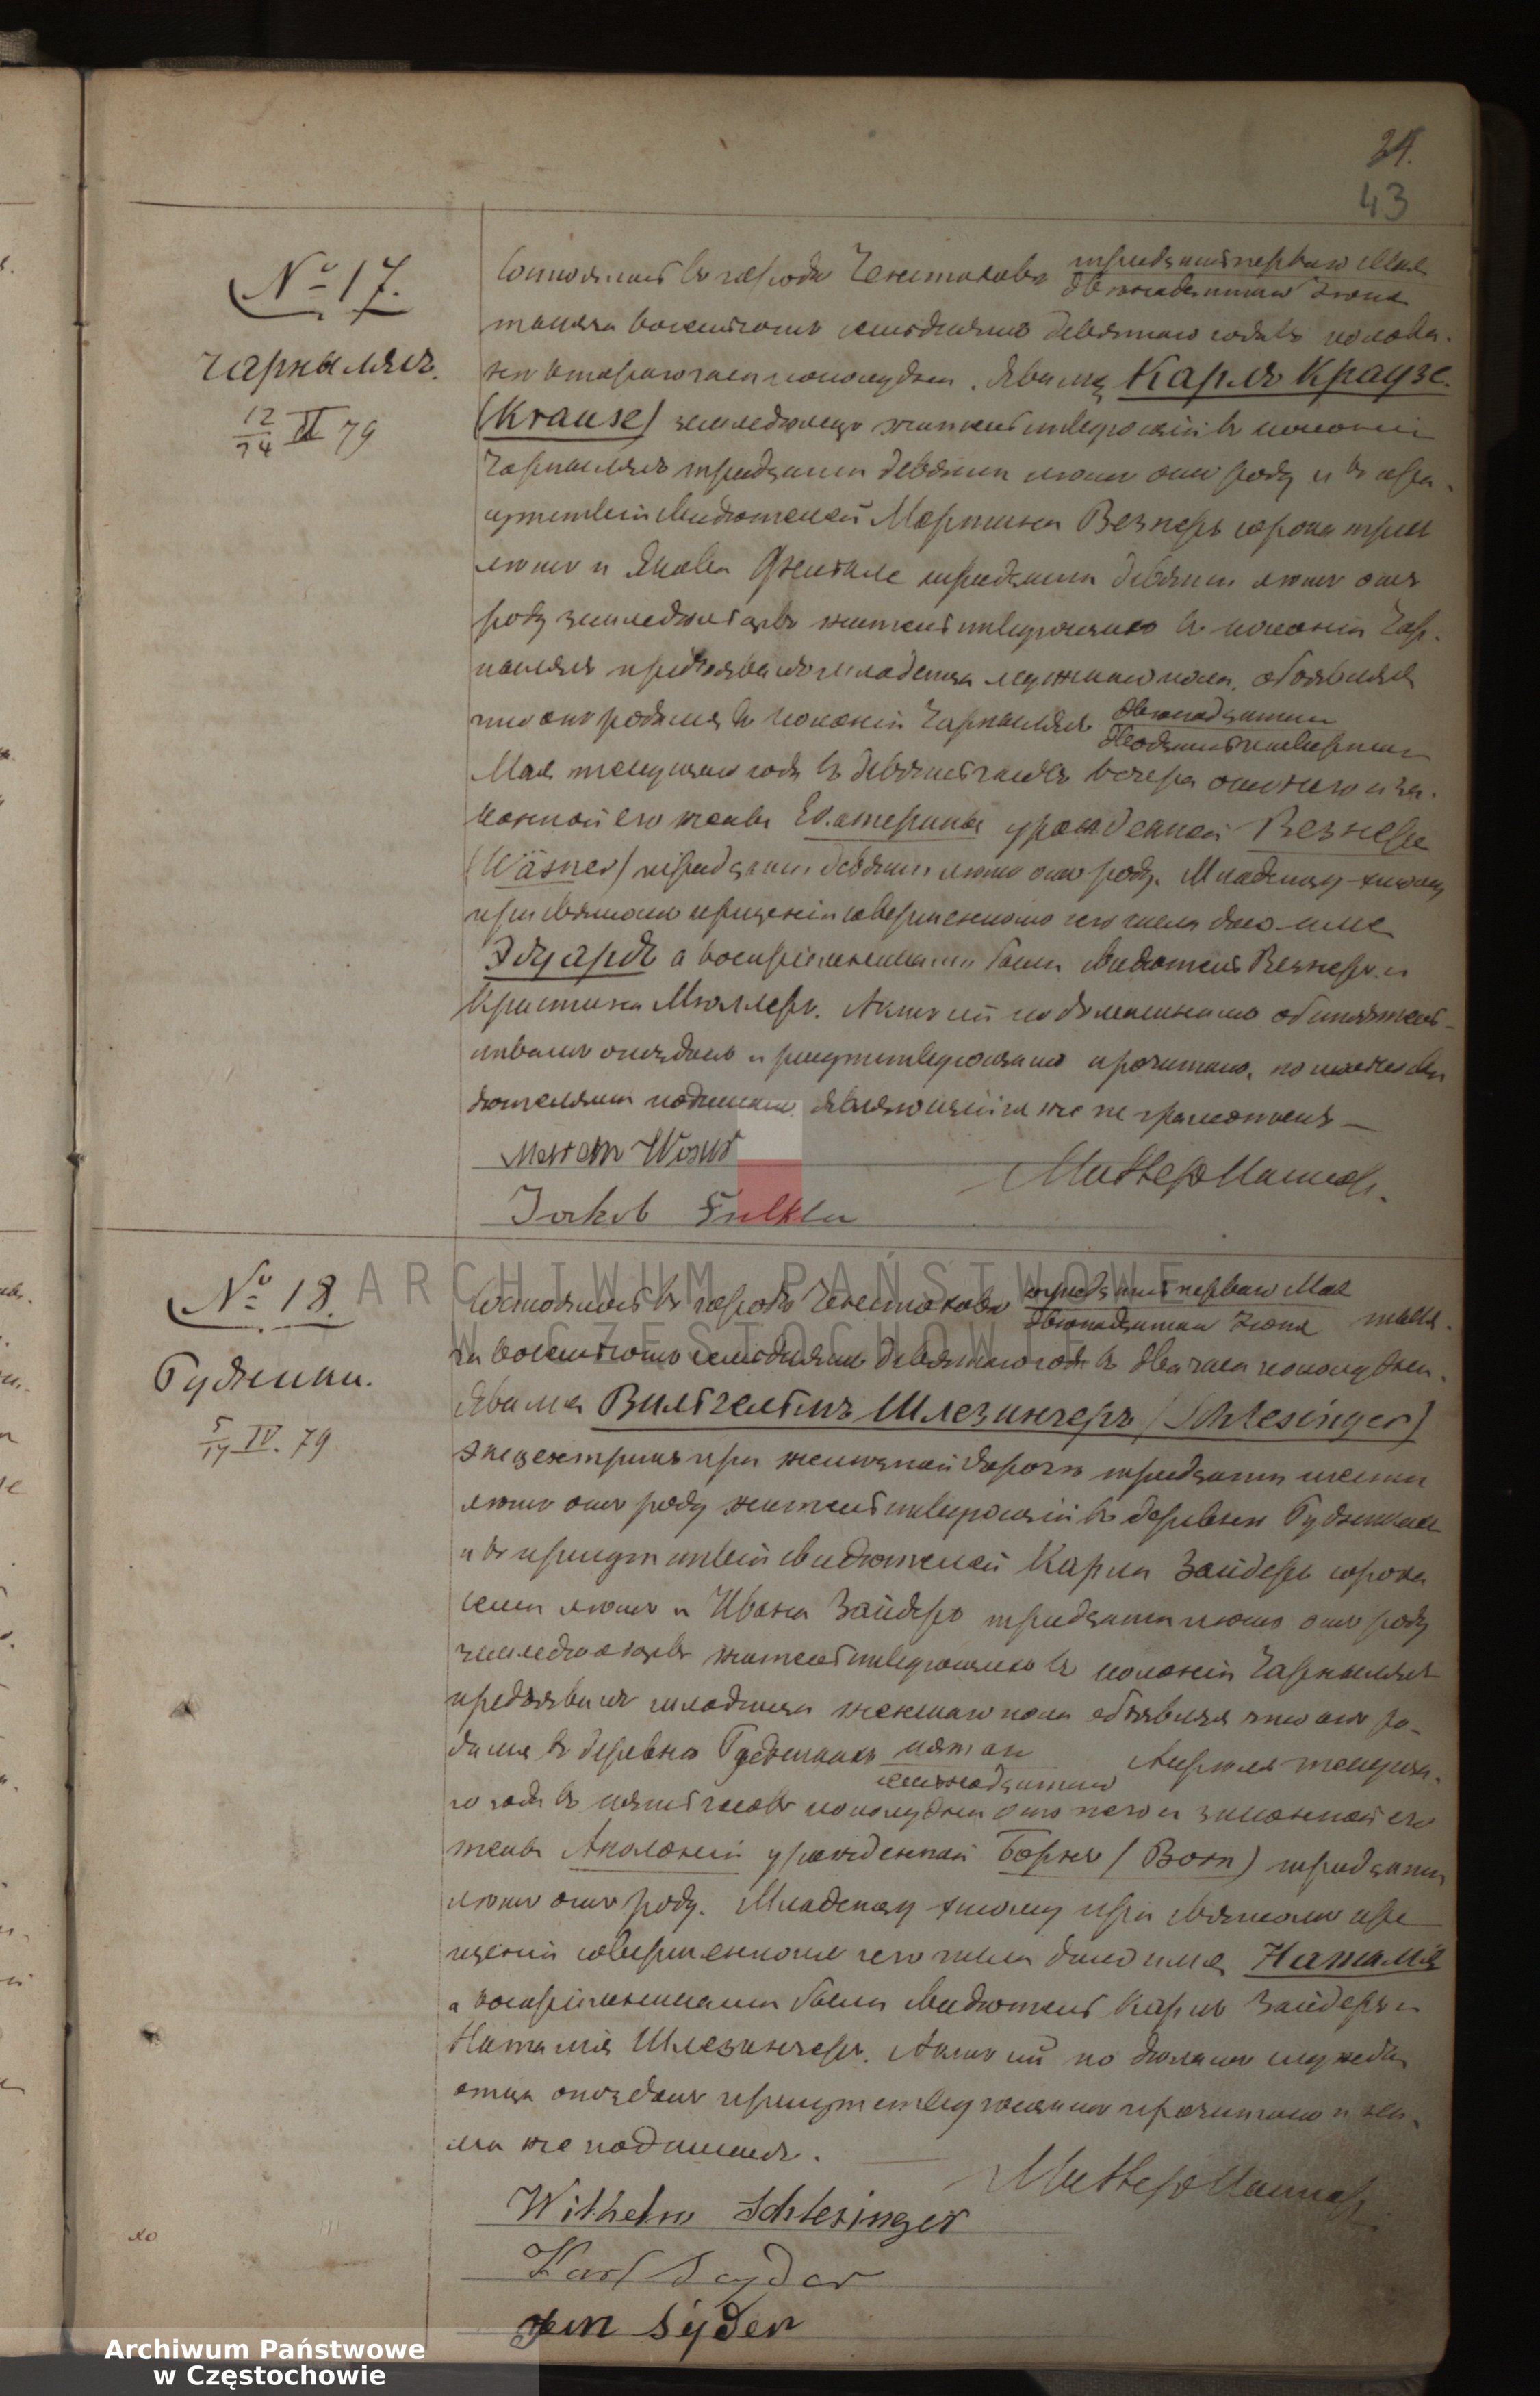 24.
43
№ 17.
Чарнылясъ.
12/24 II 79
Состоялось въ городѣ Ченстоховѣ тридцать перваго Мая / двѣнадцатаго Іюня
тысяча восемьсотъ семьдесятъ девятаго года въ полови-
нѣ втораго часа пополудни. Явился Карлъ Краузе
(Krause) земледѣлецъ жительствующій въ колоніи
Чарнылясъ тридцати девяти лѣтъ отъ роду и въ при-
сутствіи свидѣтелей Мартина Везнеръ сорока трехъ
лѣтъ и Якова тридцати девяти лѣтъ отъ
роду земледѣльцевъ жительствующихъ въ колоніи Чар-
нылясъ предъявилъ младенца мужскаго пола, объявляя
что онъ родился въ колоніи Чарнылясъ двѣнадцатаго / двадцать четвертаго
Мая текущаго года въ девять часовъ вечера отъ него и за-
конной его жены Екатерины урожденной Везнеръ
(Wäsner) тридцати девяти лѣтъ отъ роду. Младенцу этому
при святомъ крещеніи совершенномъ сего числа дано имя
Эдуардъ а воспріемниками были свидѣтель Везнеръ и
Кристина Мюллеръ. Актъ сей по домашнимъ обстоятель-
ствамъ опозданъ и присутствующимъ прочитанъ, по сви-
дѣтелями подписанъ, являющійся же не грамотенъ —
Jakob
№ 18.
Гудзики.
5/17 IV. 79
Состоялось въ городѣ Ченстоховѣ тридцать перваго Мая / двѣнадцатаго Іюня тыся-
ча восемьсотъ семьдесятъ девятаго года въ два часа пополудни.
Явился Вильгельмъ Шлезингеръ (Schlesinger)
при желѣзной дорогѣ тридцати шести
лѣтъ отъ роду жительствующій въ деревнѣ
и въ присутствіи свидѣтелей Карла Зайдеръ сорока
семи лѣтъ и Ивана Зайдеръ тридцати лѣтъ отъ роду
земледѣльцевъ жительствующихъ въ колоніи Чарнылясъ
предъявилъ младенца женскаго пола объявляя что онъ ро-
дился въ деревнѣ пятаго / семнадцатаго Апрѣля текуща-
го года въ пять часовъ пополудни отъ него и законной его
жены Аполоніи урожденной Борнъ (Born) тридцати
лѣтъ отъ роду. Младенцу этому при святомъ кре-
щеніи совершенномъ сего числа дано имя Наталія
а воспріемниками были свидѣтель Карлъ Зайдеръ и
Наталія Шлезингеръ. Актъ сей по дѣламъ службы
отца опозданъ присутствующимъ прочитанъ и
ми же подписанъ.
Wilhelm Schlesinger
Karl Seyder
Jan Syder
ARCHIWUM PAŃSTWOWE
W CZĘSTOCHOWIE
Archiwum Państwowe
w Częstochowie